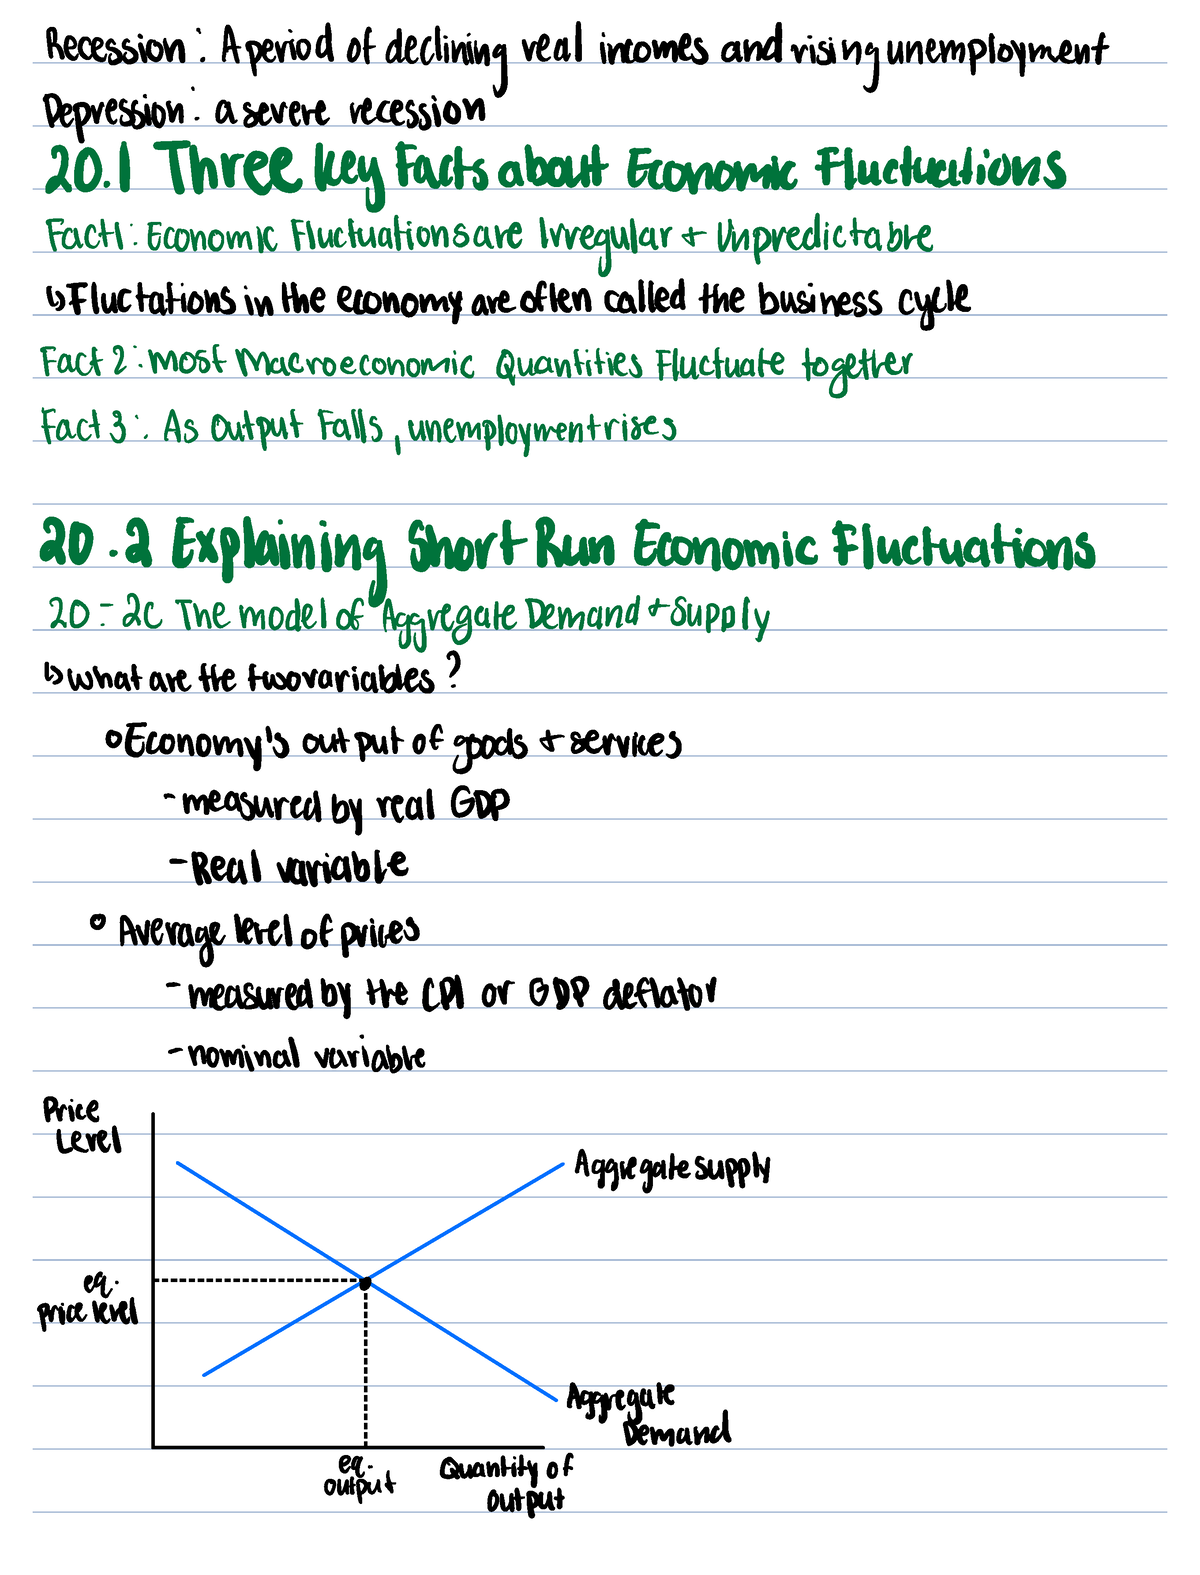 Recession: A period of declining real incomes and rising unemployment
Depression: a severe recession
20.1 Three key Facts about Economic Fluctuations
Fact 1: Economic Fluctuations are Irregular + Unpredictable
↳ Fluctations in the economy are often called the business cycle
Fact 2: Most Macroeconomic Quantities Fluctuate together
Fact 3: As Output Falls, unemployment rises
20.2 Explaining Short Run Economic Fluctuations
20-2c The model of Aggregate Demand + Supply
↳ what are the two variables?
○ Economy's output of goods + services
- measured by real GDP
- Real variable
○ Average level of prices
- measured by the CPI or GDP deflator
- nominal variable
Price
Level
Aggregate supply
eq.
price level
Aggregate
Demand
eq.
output
Quantity of
output